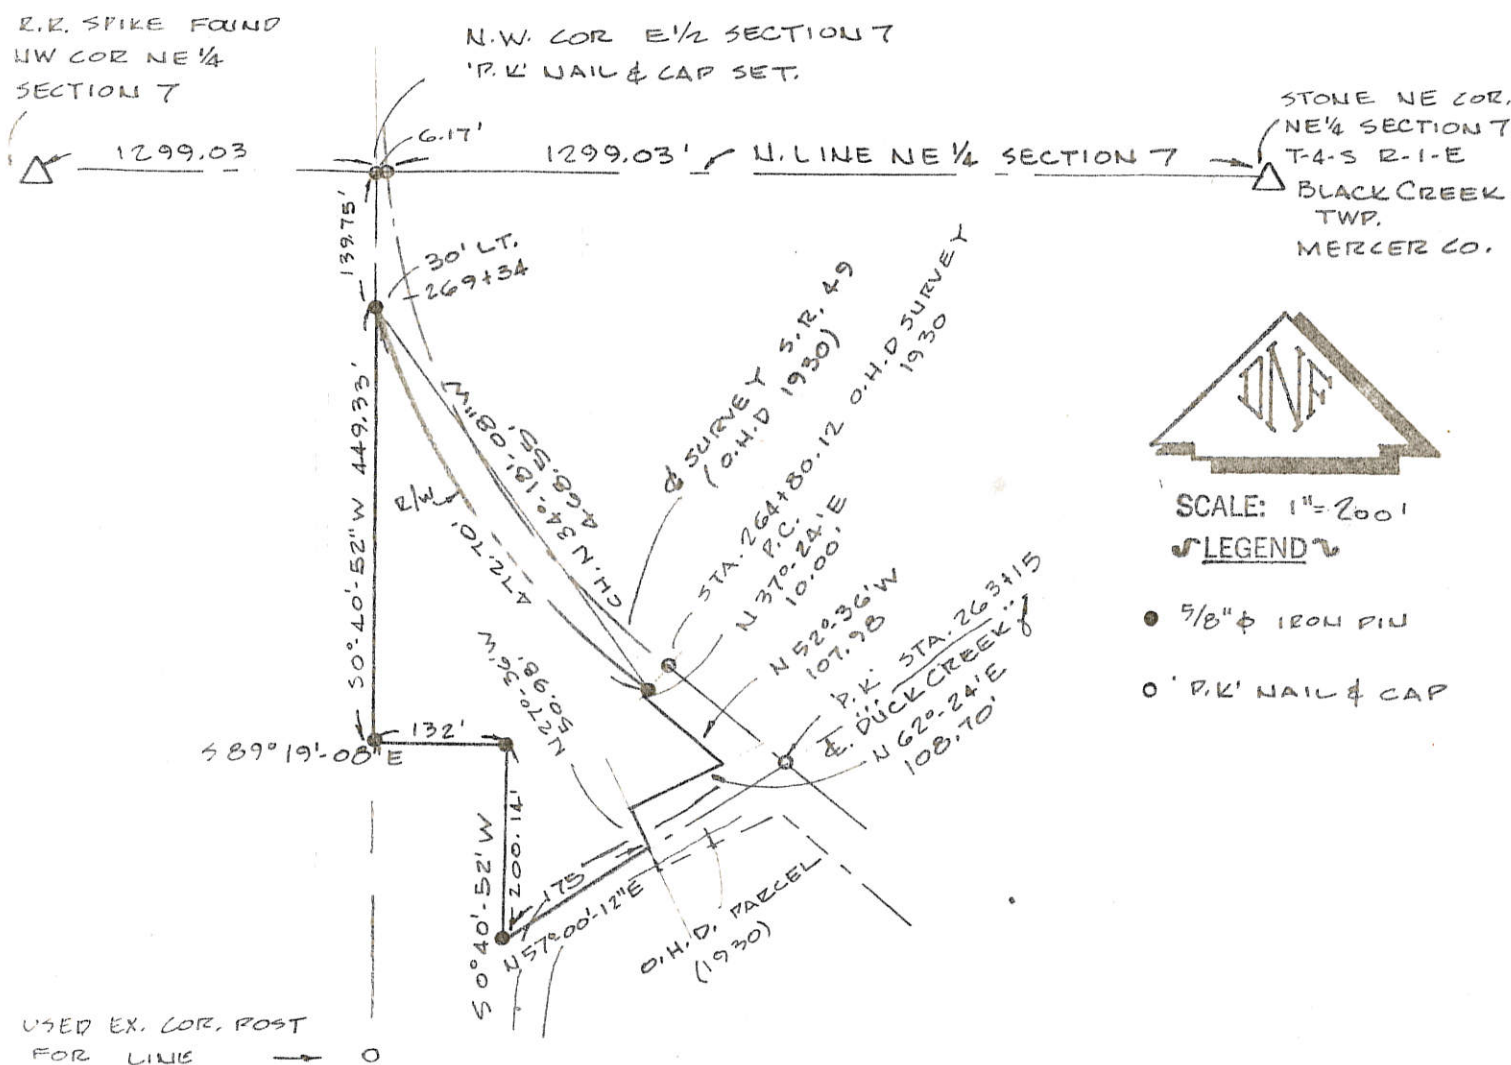 R.R. SPIKE FOUND
NW COR NE 1/4
SECTION 7
N.W. COR E 1/2 SECTION 7
'P.K' NAIL & CAP SET.
STONE NE COR.
NE 1/4 SECTION 7
T-4-S R-1-E
BLACK CREEK
TWP.
MERCER CO.
1299.03
6.17'
1299.03'
N. LINE NE 1/4 SECTION 7
139.75'
30' LT.
269+34
S0°-40'-52"W 449.33'
R/W
472.70'
CH. N 34°-18'-08"W
468.55'
℄ SURVEY S.R. 49
(O.H.D 1930)
STA. 264+80.12 O.H.D SURVEY
P.C. 1930
N 37°-24'E
10.00'
N 52°-36'W
107.98
'P.K.' STA. 263+15
℄. DUCK CREEK
N 62°-24'E
108.70'
N27°-36'W
50.98'
S 89°19'-08"E
132'
S 0°40'-52'W
200.14'
175
N57°00'-12"E
O.H.D. PARCEL
(1930)
USED EX. COR. POST
FOR LINE
DNF
SCALE: 1"=200'
LEGEND
5/8"ϕ IRON PIN
'P.K' NAIL & CAP